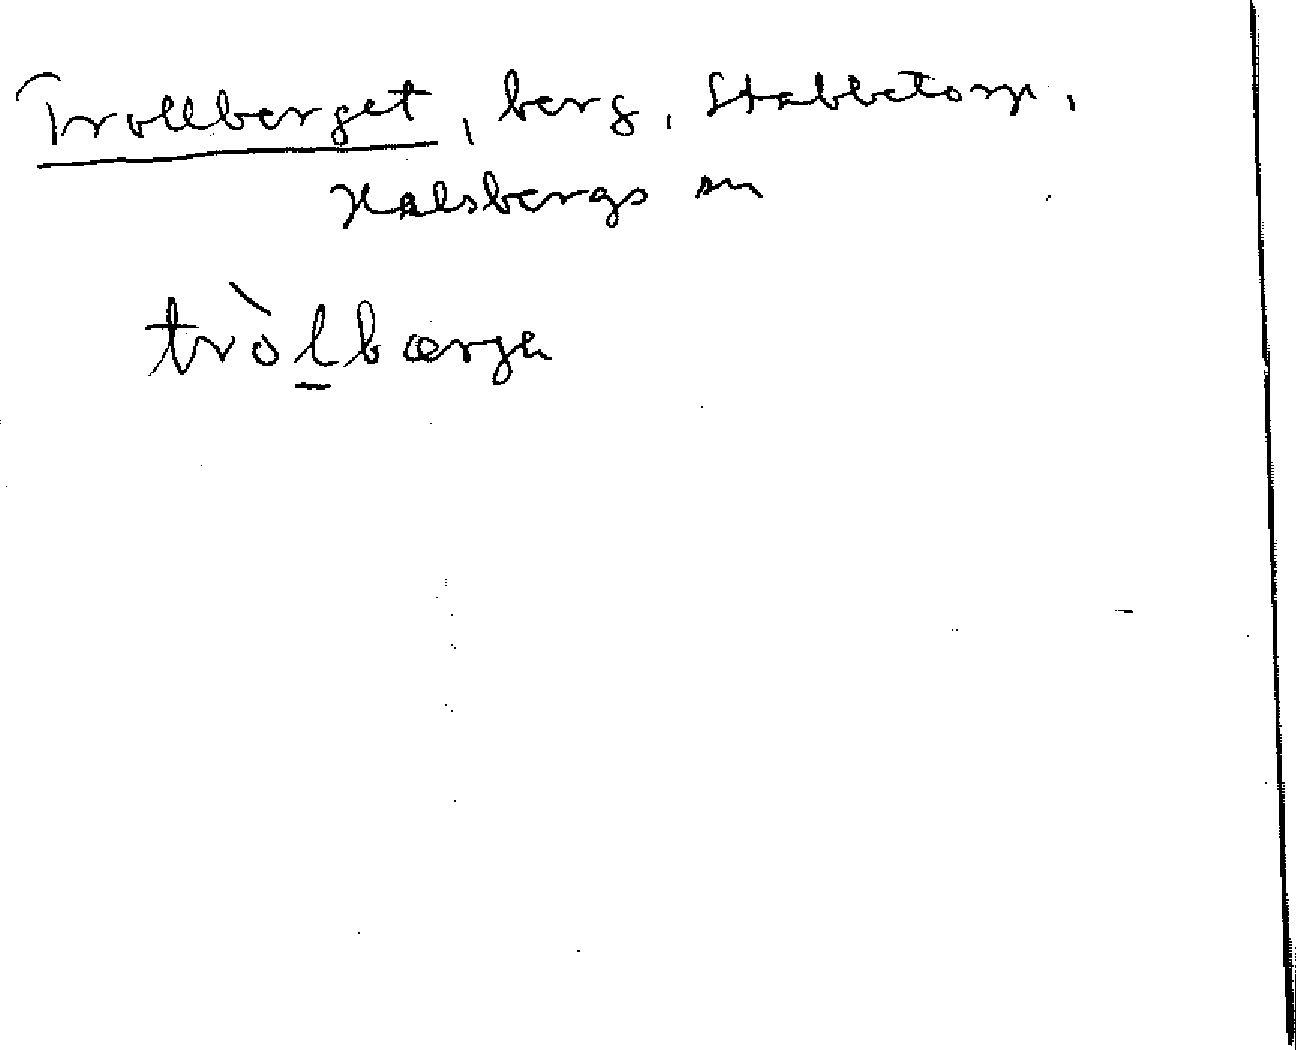 Trollberget, berg, Stabbetorp,
Halsbergs sn
tròl̲bærje